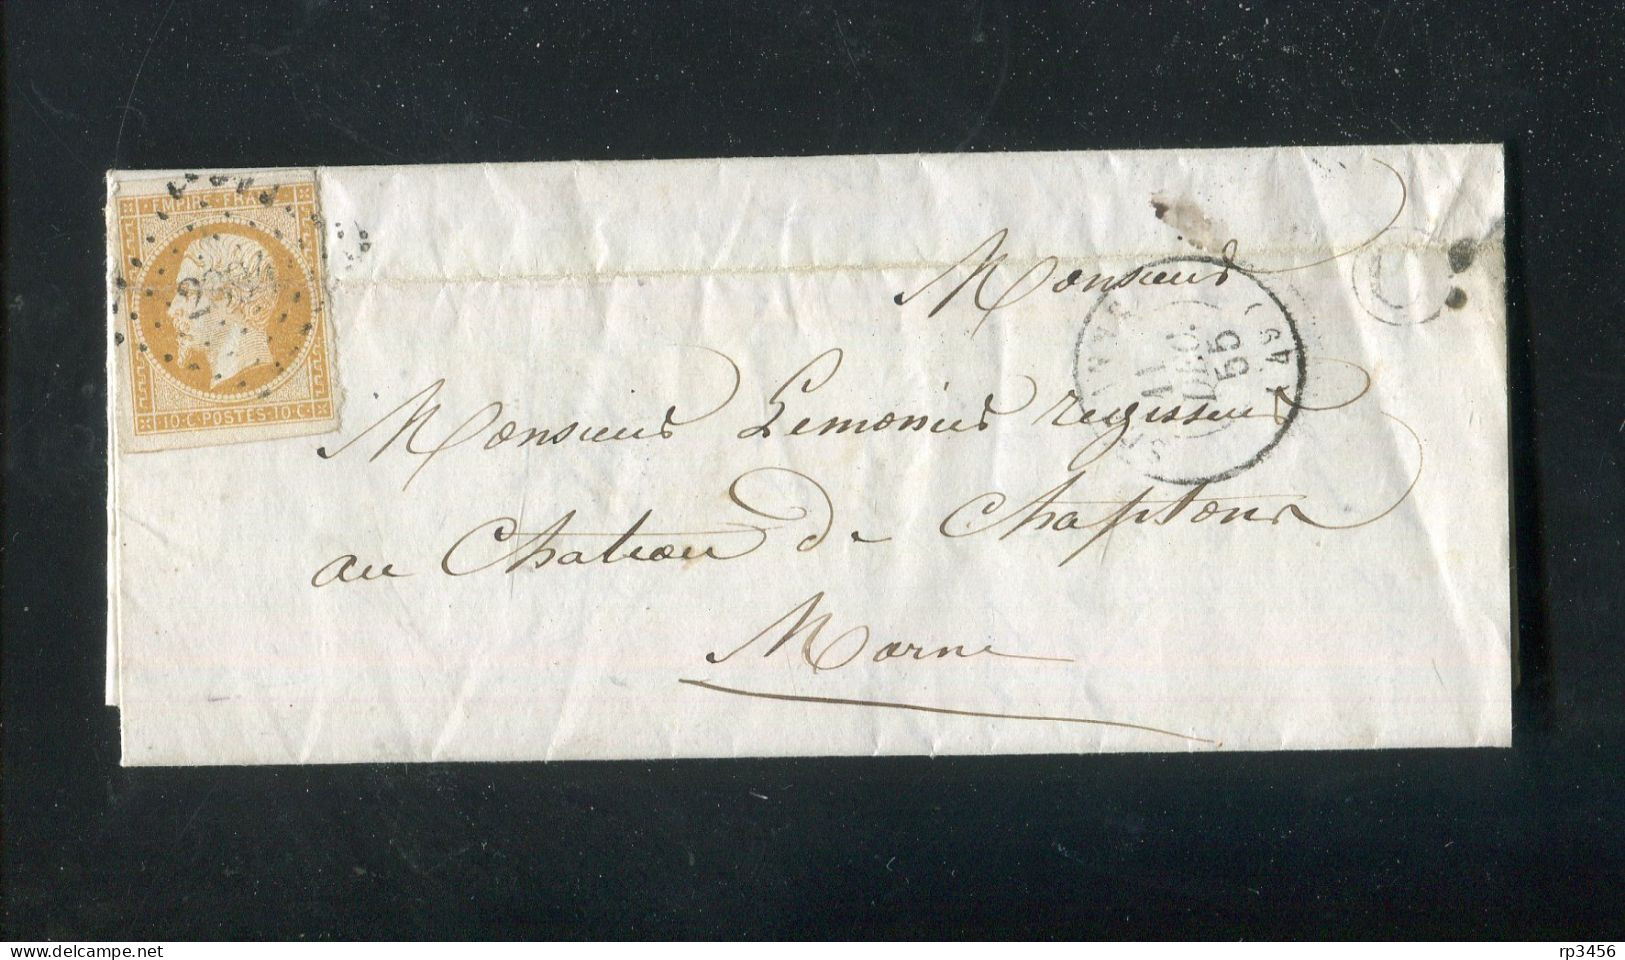 EMPIRE FRANC
10·C POSTES·10·C
Monsieur
11
DEC.
55
(49)
Monsieur Lemonier regisseur
au Chateau de Chaptons
Marne
rp3456